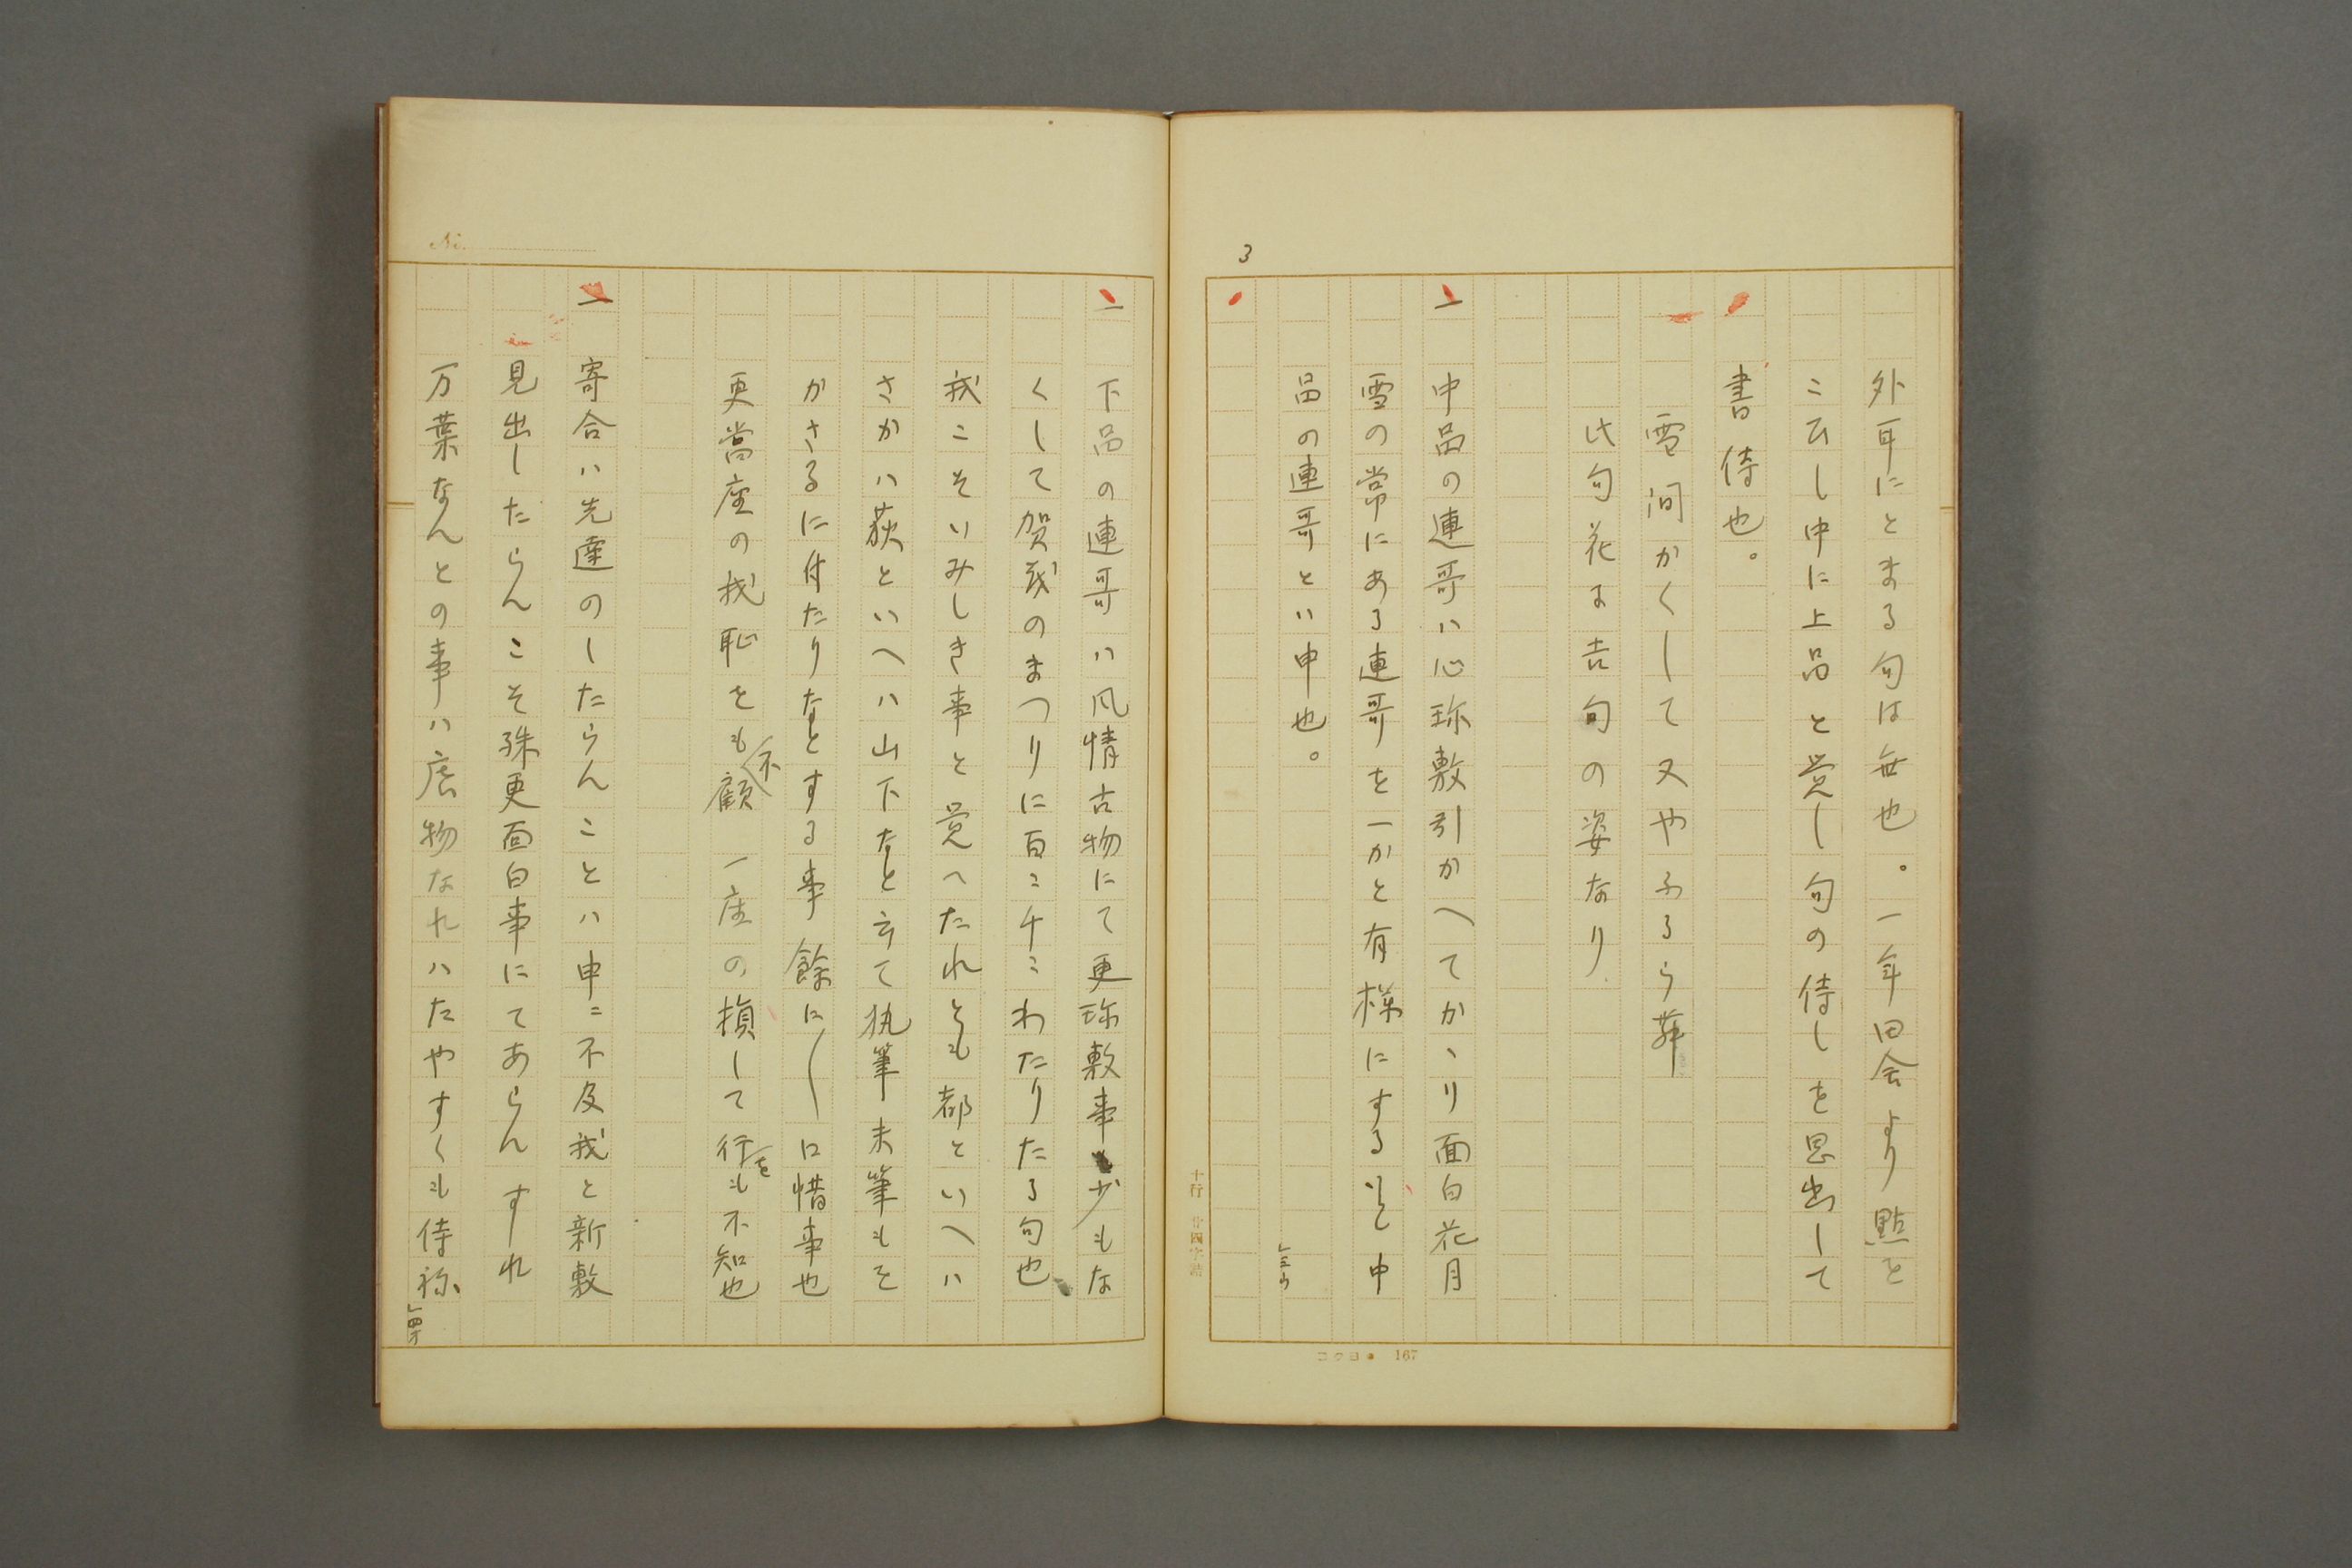 3
外耳にとまる句は無也。一年田会より點を
こひし中に上品と覚し句の侍しを思出して
書侍也。
雪間かくして又やふるらん
此句花は吉句の姿なり
一 中品の連哥ハ心珎敷引かへてかゝり面白花月
雪の常にある連哥を一かと有様にするを中
品の連哥とハ申也。
」三ウ
一 下品の連哥ハ風情古物にて更珎敷事少もな
くして賀茂のまつりに百こ千こわたりたる句也
我こそいみしき事と覚へたれとも都といへハ
さかハ荻といへハ山下なと云て執筆未筆もを
かさるに付たりなとする事餘に〱口惜事也
更當座の我恥をも不顧 一座の損して行をも不知也
一 寄合ハ先達のしたらんことハ申ニ不及我と新敷
見出したらんこそ殊更面白事にてあらんすれ
万葉なんとの事ハ底物なれハたやすくも侍祢
」四オ
コクヨ 167
十行 廿四字詰
No.